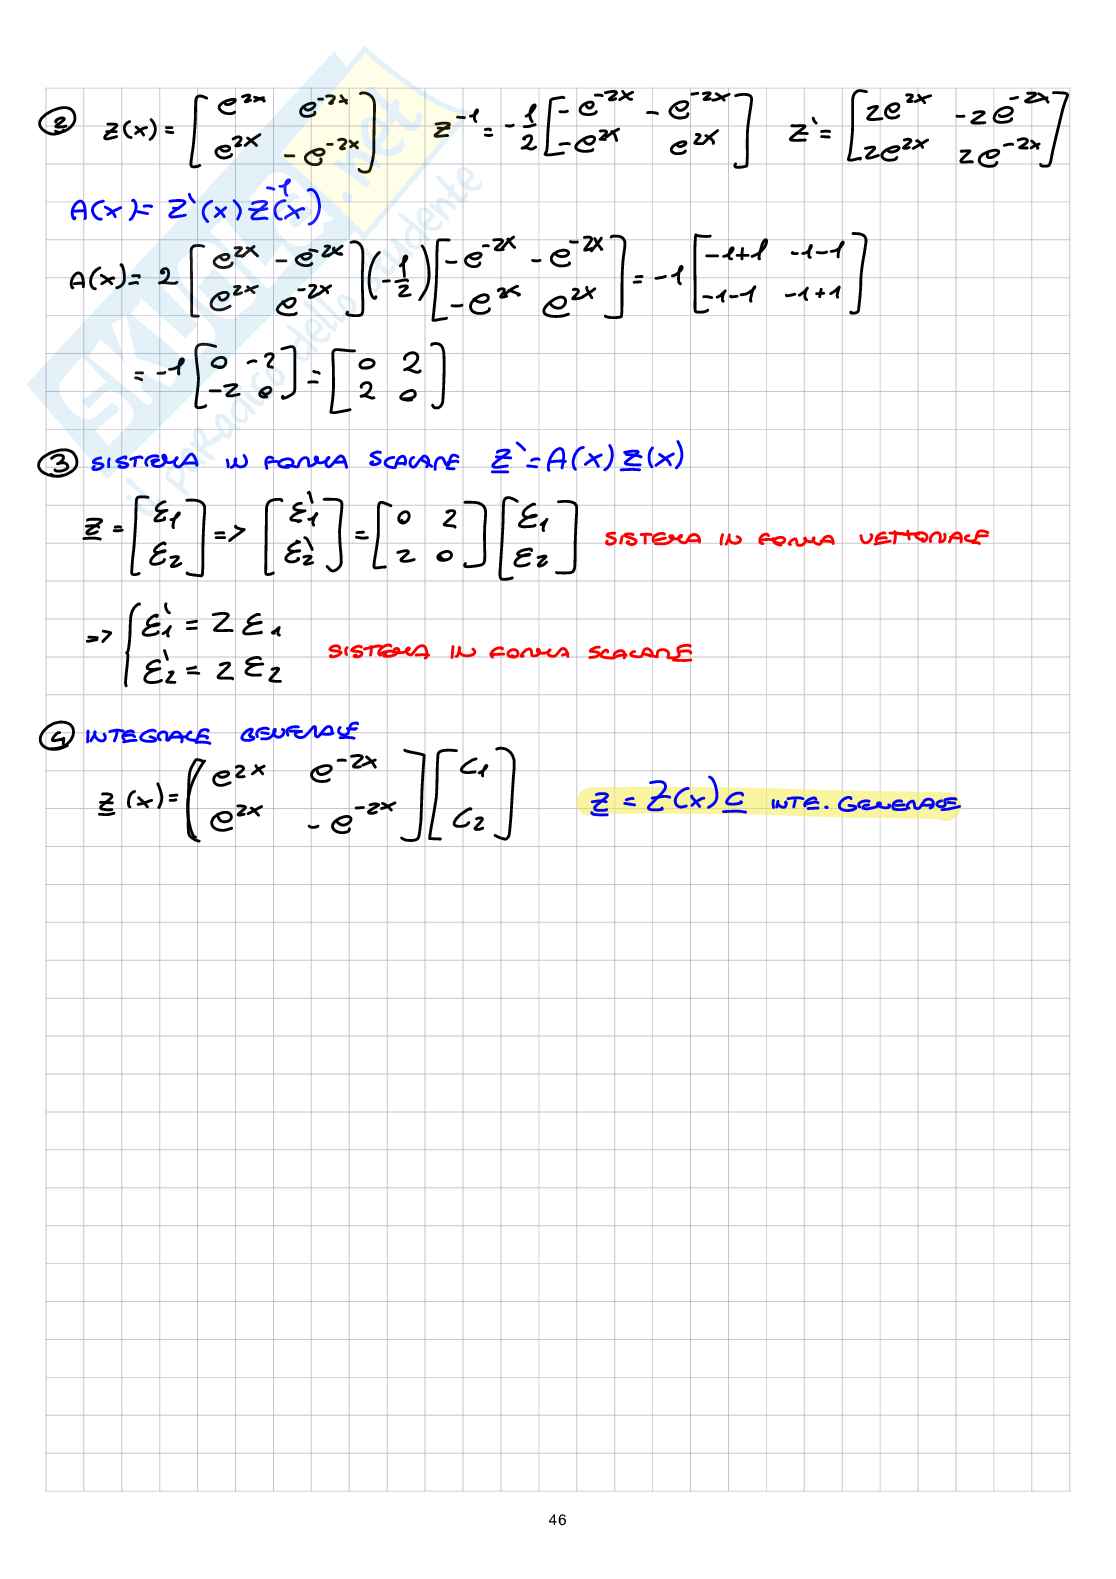 ② Z(x) = [ e^{2x} e^{-2x} ; e^{2x} -e^{-2x} ] Z^{-1} = -1/2 [ -e^{-2x} -e^{-2x} ; -e^{2x} e^{2x} ] Z' = [ 2e^{2x} -2e^{-2x} ; 2e^{2x} 2e^{-2x} ]
A(x) = Z'(x) Z^{-1}(x)
A(x) = 2 [ e^{2x} -e^{-2x} ; e^{2x} e^{-2x} ] (-1/2) [ -e^{-2x} -e^{-2x} ; -e^{2x} e^{2x} ] = -1 [ -1+1 -1-1 ; -1-1 -1+1 ]
= -1 [ 0 -2 ; -2 0 ] = [ 0 2 ; 2 0 ]
③ SISTEMA IN FORMA SCALARE Z' = A(x) Z(x)
Z = [ Ɛ1 ; Ɛ2 ] => [ Ɛ1' ; Ɛ2' ] = [ 0 2 ; 2 0 ] [ Ɛ1 ; Ɛ2 ] SISTEMA IN FORMA VETTORIALE
=> { Ɛ1' = 2 Ɛ1
Ɛ2' = 2 Ɛ2 SISTEMA IN FORMA SCALARE
④ INTEGRALE GENERALE
Z(x) = ( e^{2x} e^{-2x} ; e^{2x} -e^{-2x} ] [ C1 ; C2 ] Z = Z(x) C INTE. GENERALE
46
SKUOLA.net
il paradiso dello studente